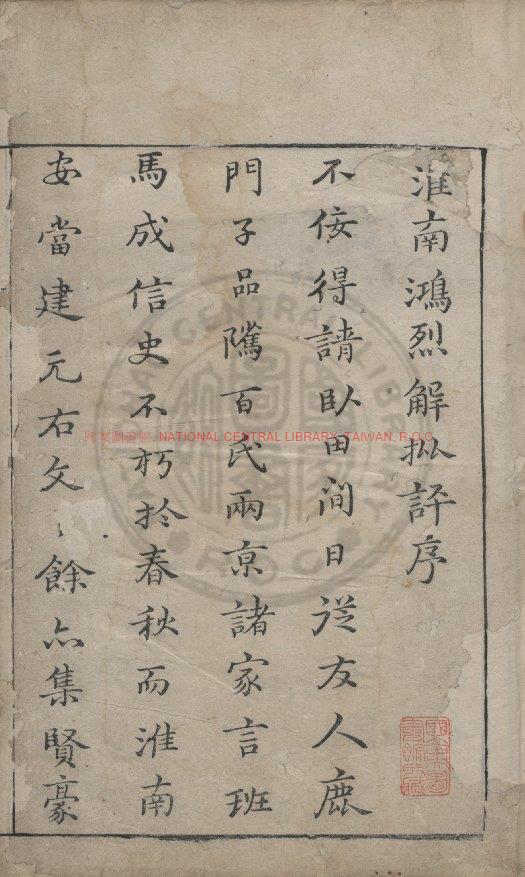 淮南鴻烈解批評序
不佞得請臥田間日從友人鹿
門子品隲百氏兩京諸家言班
馬成信史不朽於春秋而淮南
安當建元右文之餘亦集賢豪
NATIONAL CENTRAL LIBRARY, TAIWAN, R.O.C.